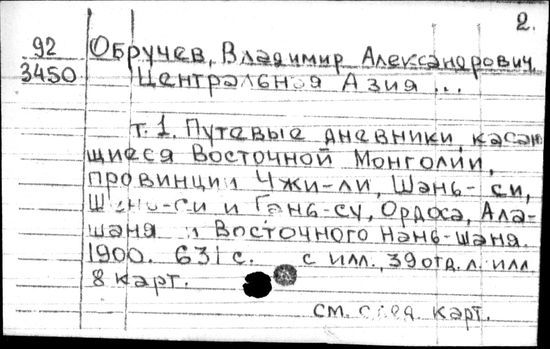 2.
92 Обручев, Владимир Александрович.
3450 Центральная Азия ...
т. 1. Путевые дневники, касаю
щиеся Восточной Монголии,
провинции Чжи-ли, Шань-си,
Шень-си и Гань-су, Ордоса, Ала-
шаня и Восточного Нань-шаня.
1900. 631 с. с илл., 39 отд. л. илл.
8 карт.
см. след. карт.